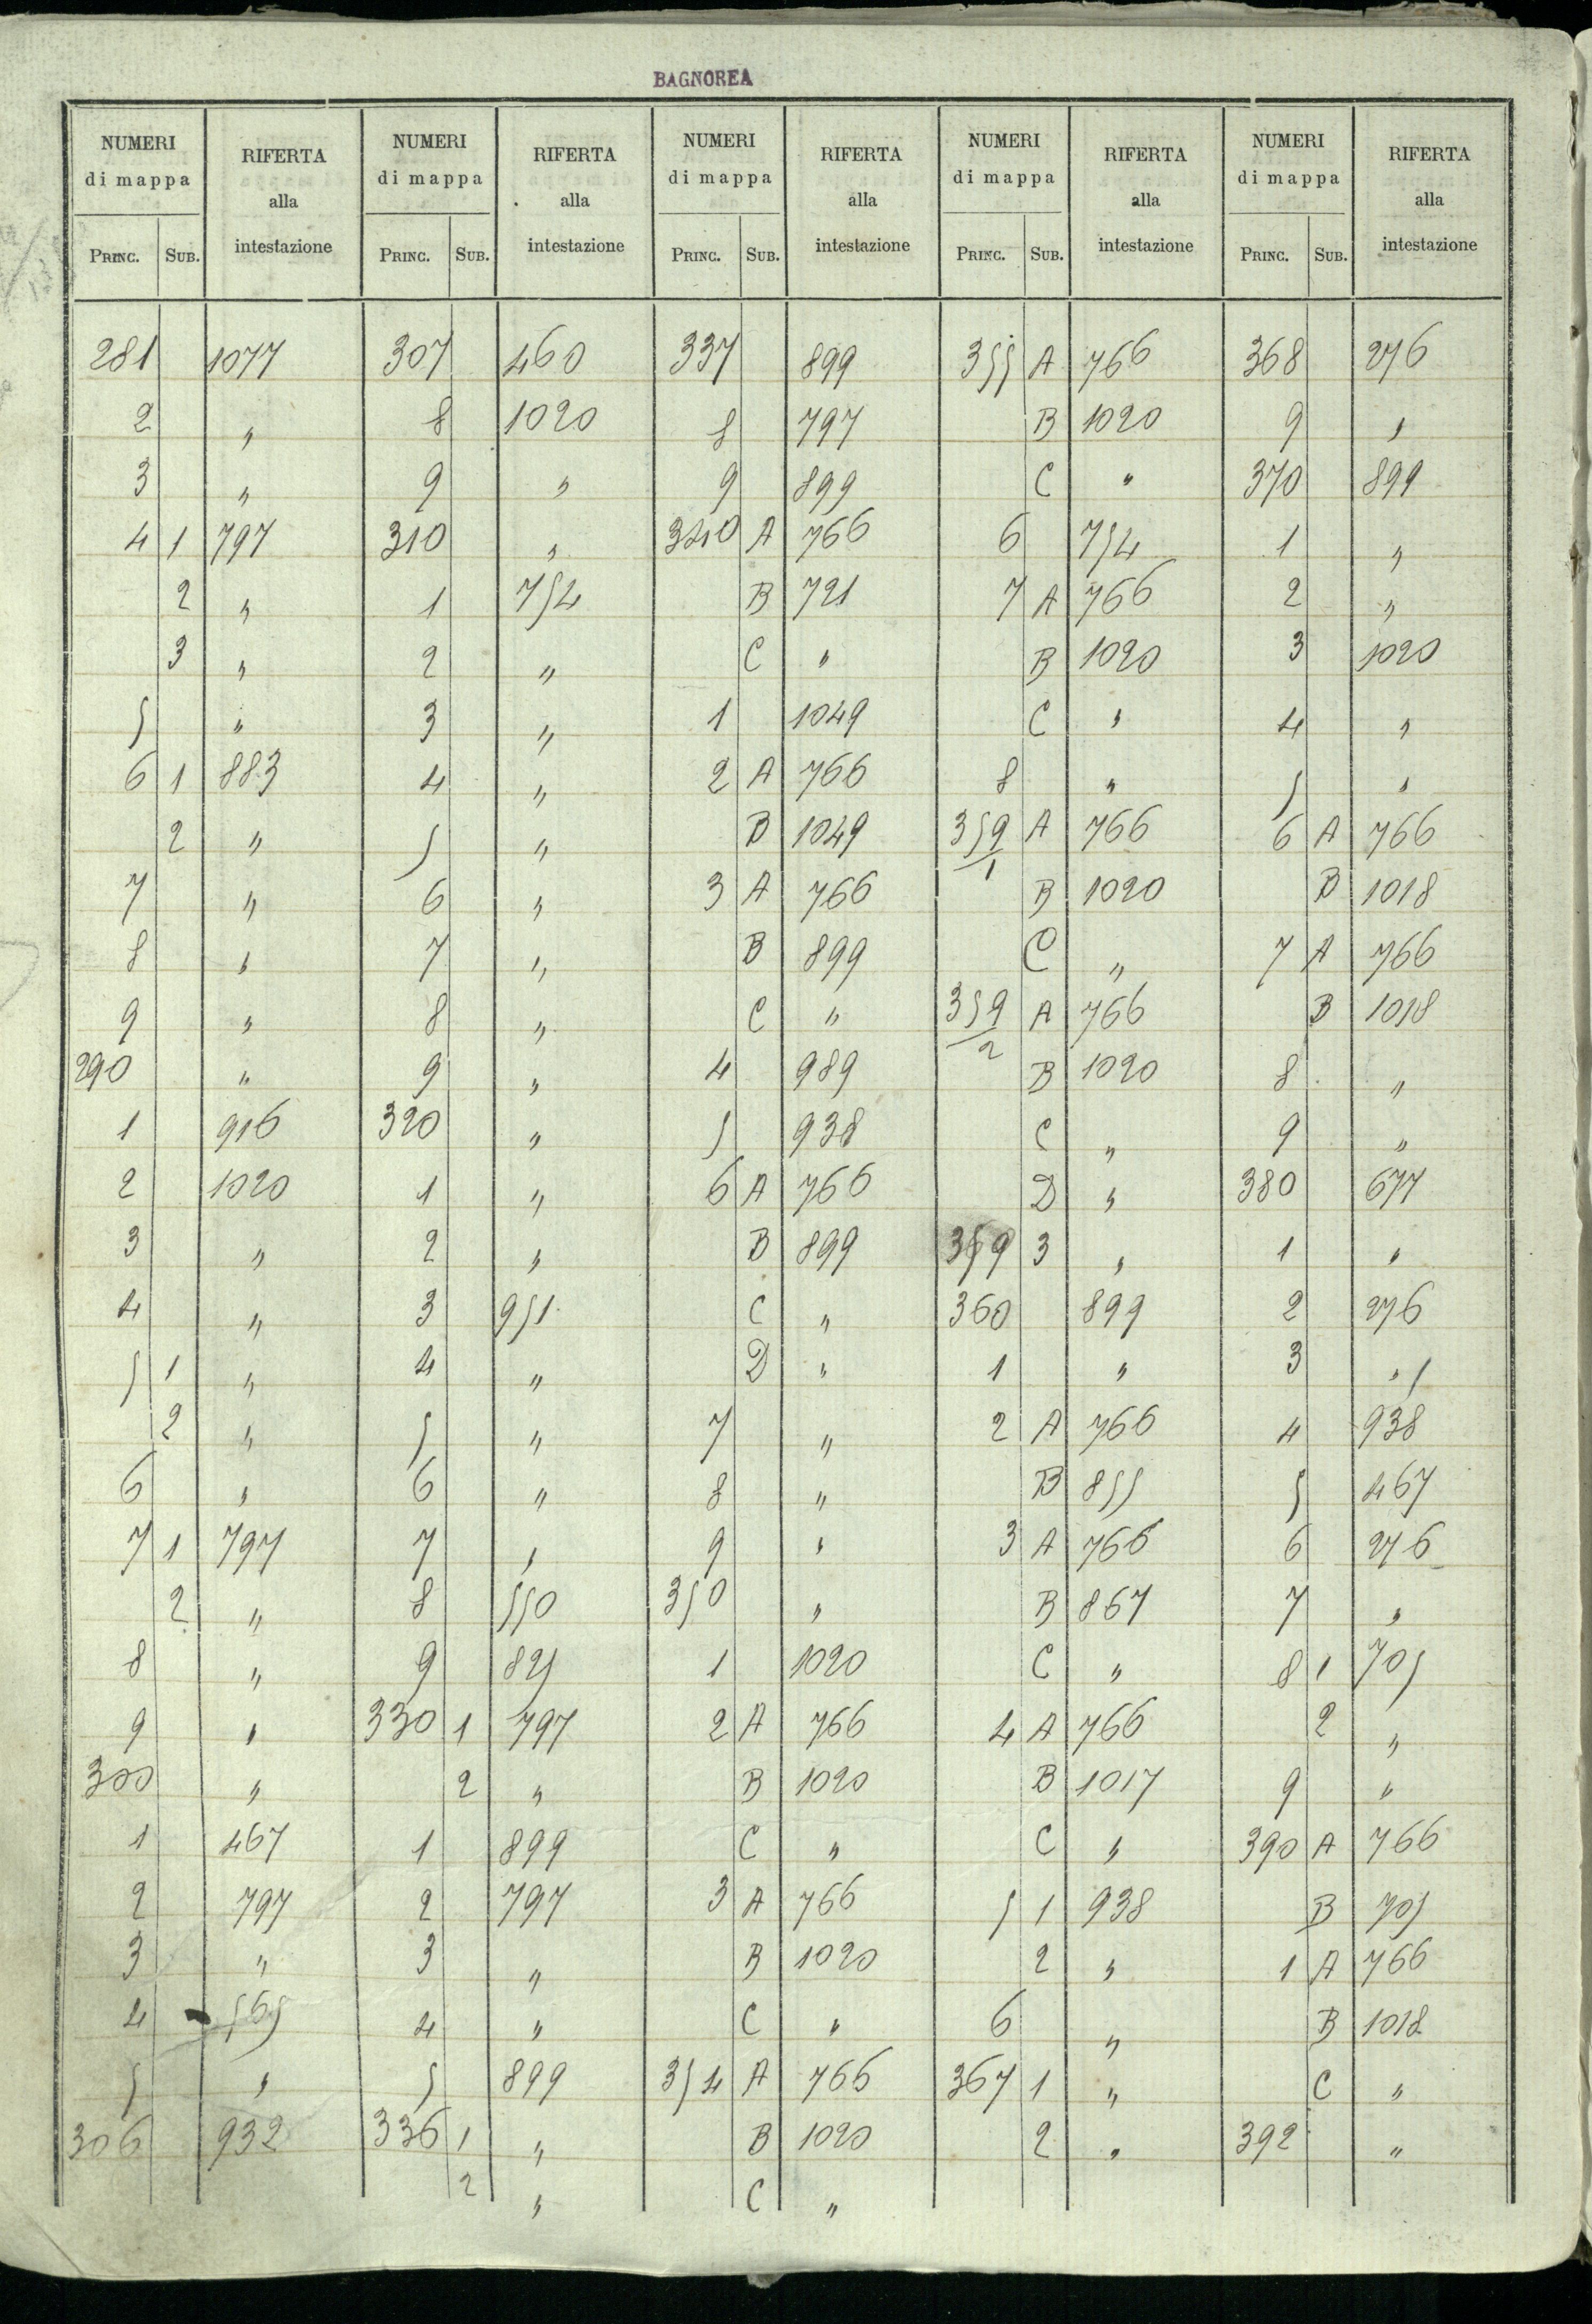 BAGNOREA
NUMERI di mappa RIFERTA alla intestazione NUMERI di mappa RIFERTA alla intestazione NUMERI di mappa RIFERTA alla intestazione NUMERI di mappa RIFERTA alla intestazione NUMERI di mappa RIFERTA alla intestazione
PRINC. SUB. PRINC. SUB. PRINC. SUB. PRINC. SUB. PRINC. SUB.
281 1077 307 460 337 899 355 A 766 368 276
2 „ 8 1020 8 797 B 1020 9 „
3 „ 9 „ 9 899 C „ 370 899
4 1 797 310 „ 340 A 766 6 754 1 „
2 „ 1 754 B 721 7 A 766 2 „
3 „ 2 „ C „ B 1020 3 1020
5 „ 3 „ 1 1049 C „ 4 „
6 1 883 4 „ 2 A 766 8 „ 5 „
2 „ 5 „ B 1049 359/1 A 766 6 A 766
7 „ 6 „ 3 A 766 B 1020 B 1018
8 „ 7 „ B 899 C „ 7 A 766
9 „ 8 „ C „ 359/2 A 766 B 1018
290 „ 9 „ 4 989 B 1020 8 „
1 916 320 „ 5 938 C „ 9 „
2 1020 1 „ 6 A 766 D „ 380 677
3 „ 2 „ B 899 359 3 „ 1 „
4 „ 3 951 C „ 360 899 2 276
5 1 „ 4 „ D „ 1 „ 3 „
2 „ 5 „ 7 „ 2 A 766 4 938
6 „ 6 „ 8 „ B 855 5 467
7 1 797 7 „ 9 „ 3 A 766 6 276
2 „ 8 550 350 „ B 867 7 „
8 „ 9 825 1 1020 C „ 8 1 705
9 „ 330 1 797 2 A 766 4 A 766 2 „
300 „ 2 „ B 1020 B 1017 9 „
1 467 1 899 C „ C „ 390 A 766
2 797 2 797 3 A 766 5 1 938 B 705
3 „ 3 „ B 1020 2 „ 1 A 766
4 565 4 „ C „ 6 „ B 1018
5 „ 5 899 354 A 766 367 1 „ C „
306 932 336 1 „ B 1020 2 „ 392 „
2 „ C „